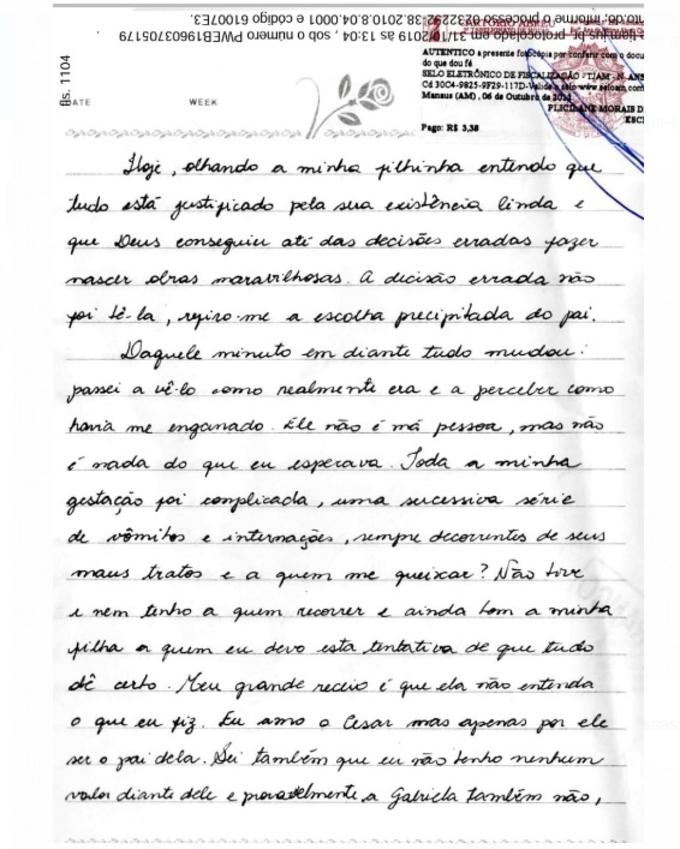 , informe o processo 0232292-38.2010.8.04.0001 e código 61007E3.
protocolado em 31/10/2019 às 13:04 , sob o número PWEB19603705179
fls. 1104
CARTÓRIO ABREU
AUTENTICO a presente fotocópia por conferir com o docu
do que dou fé
SELO ELETRÔNICO DE FISCALIZAÇÃO - TJAM - N- ANS
Cd 30C4-9825-9F29-117D-Valide o selo www.seloam.com
Manaus (AM) , 06 de Outubro de
MORAIS D
ESC
Pago: R$ 3,38
DATE WEEK
Hoje, olhando a minha filhinha entendo que
tudo está justificado pela sua existência linda e
que Deus conseguiu até das decisões erradas fazer
nascer obras maravilhosas. A decisão errada não
foi tê-la, refiro-me a escolha precipitada do pai.
Daquele minuto em diante tudo mudou:
passei a vê-lo como realmente era e a perceber como
havia me enganado. Ele não é má pessoa, mas não
é nada do que eu esperava. Toda a minha
gestação foi complicada, uma sucessiva série
de vômitos e internações, sempre decorrentes de seus
maus tratos e a quem me queixar? Não tive
e nem tenho a quem recorrer e ainda tem a minha
filha a quem eu devo esta tentativa de que tudo
dê certo. Meu grande receio é que ela não entenda
o que eu fiz. Eu amo o Cesar mas apenas por ele
ser o pai dela. Sei também que eu não tenho nenhum
valor diante dele e provavelmente a Gabriela também não,